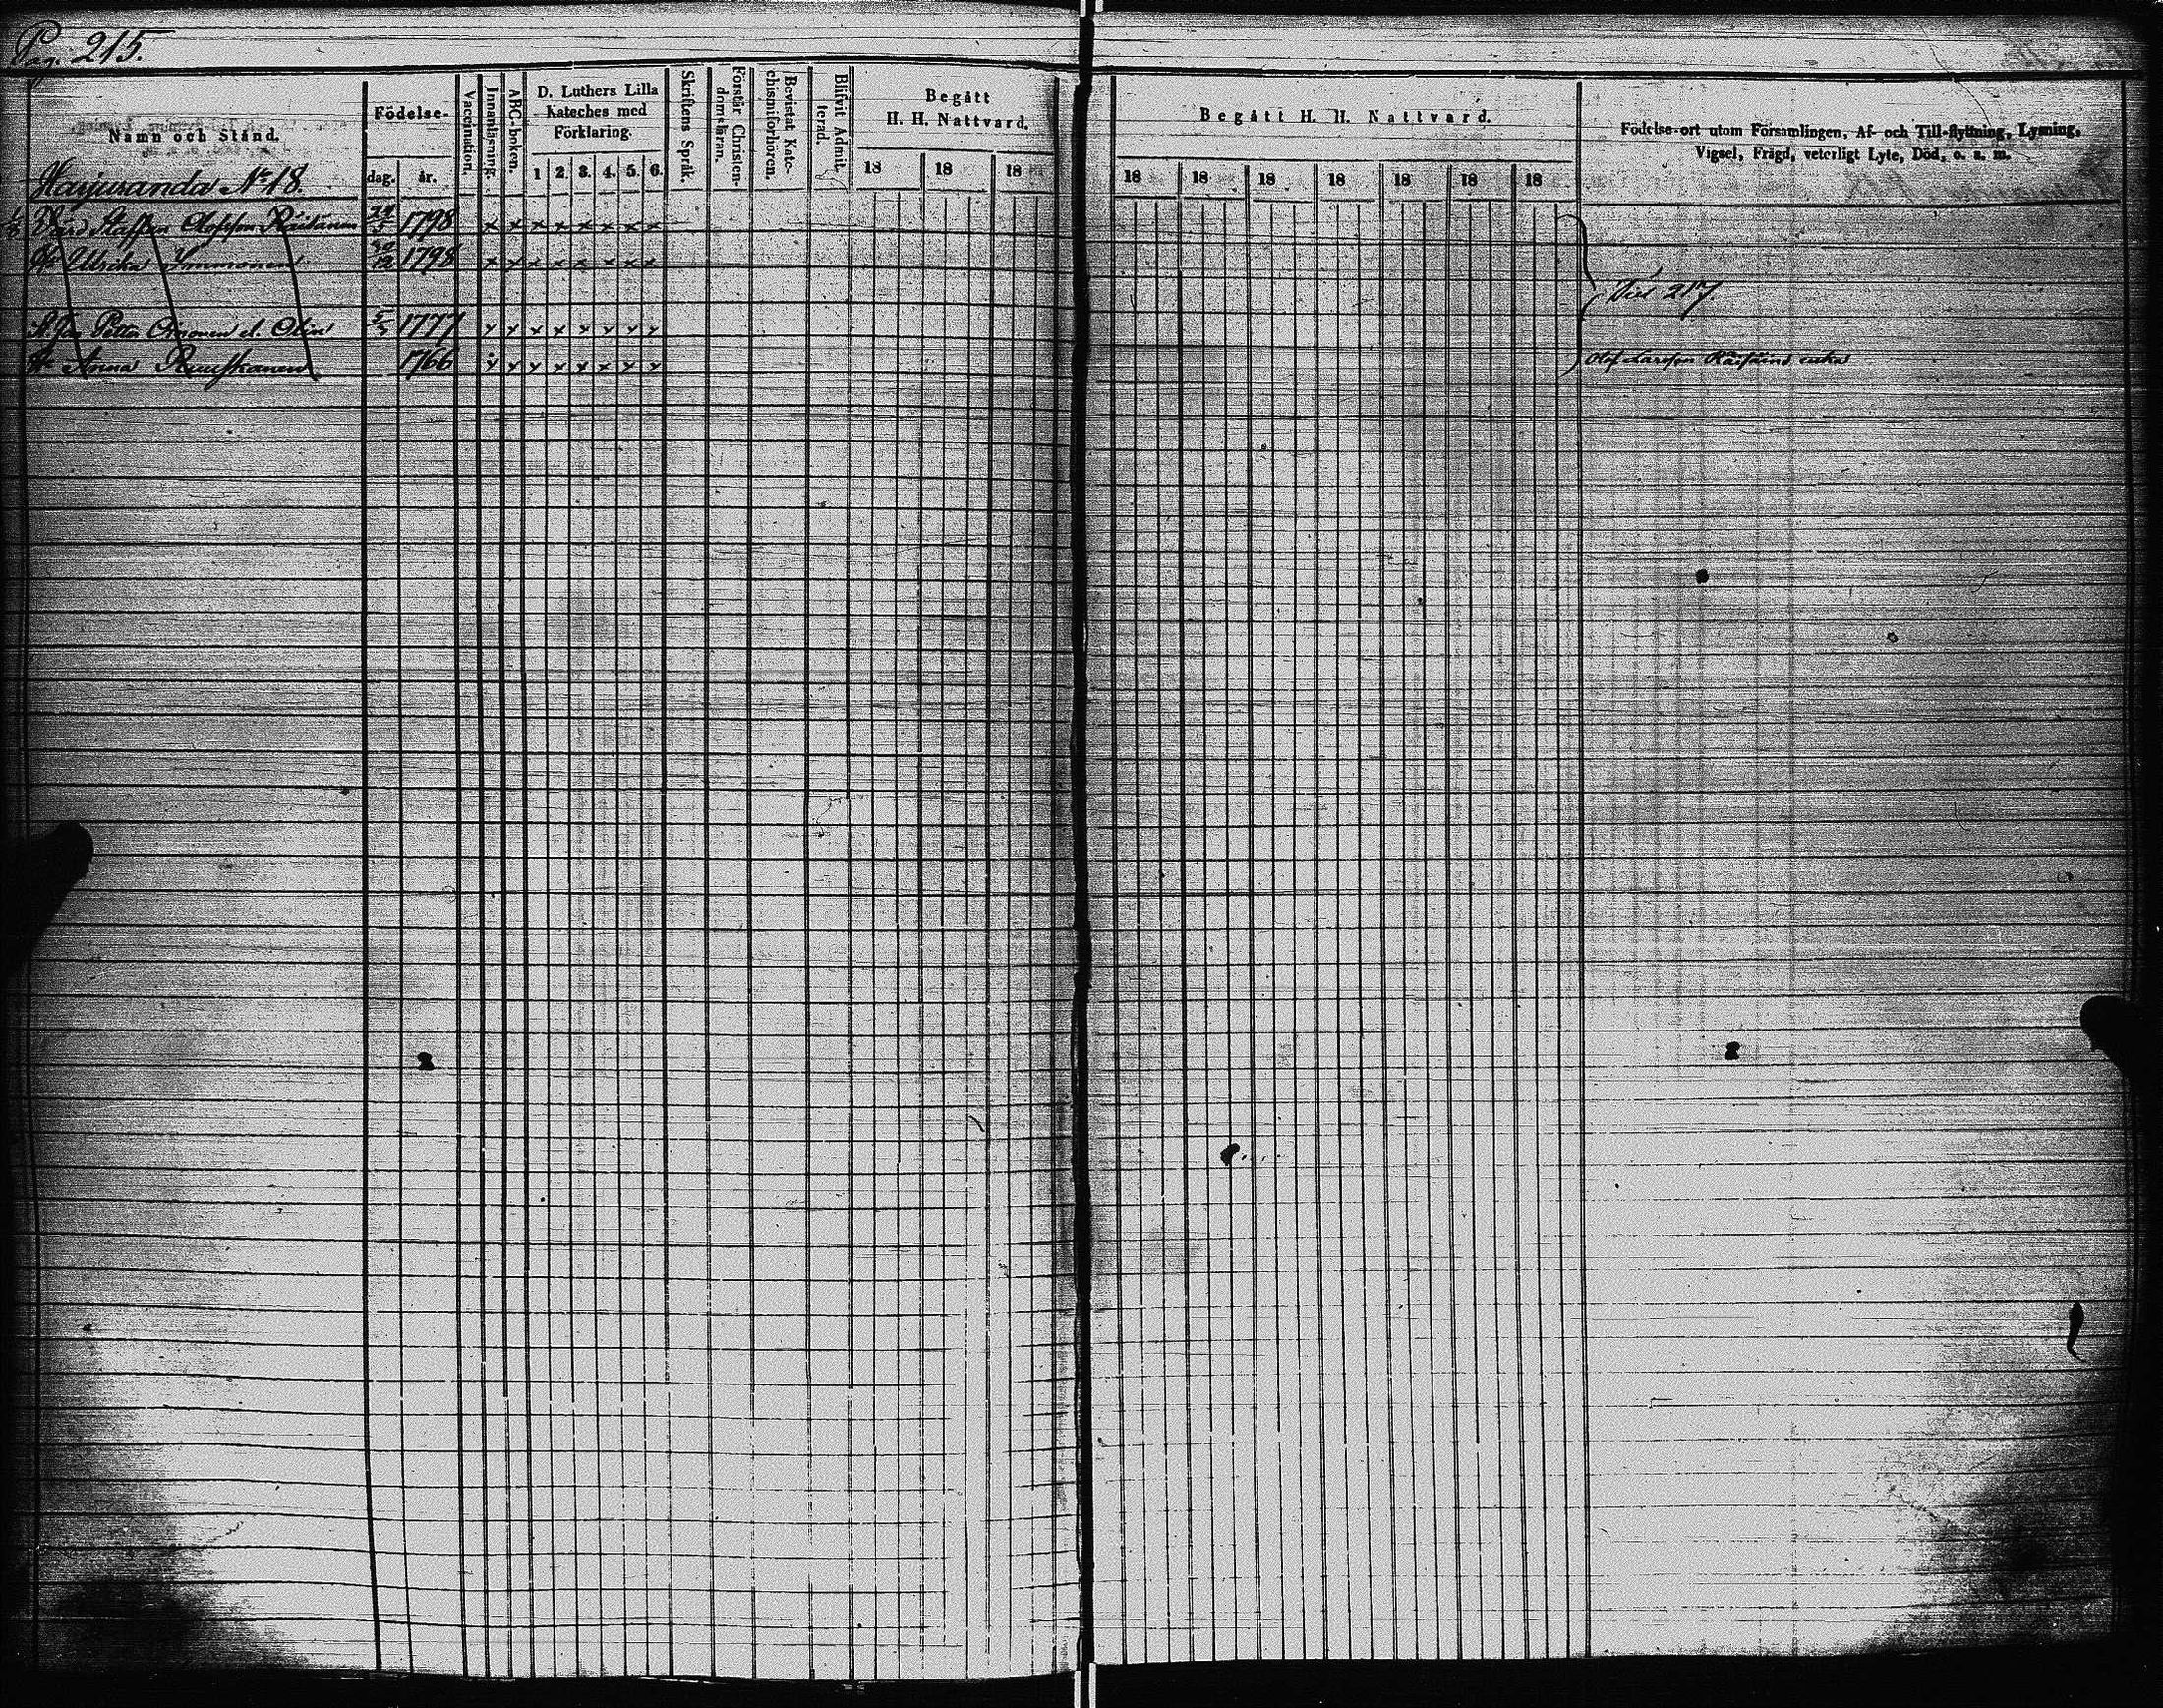 Pag. 215.
Namn och Stånd.
Födelse-
dag. år.
Vaccination.
Innanläsning.
ABC-boken.
D. Luthers Lilla
Kateches med
Förklaring.
1 2. 3. 4. 5. 6.
Skriftens Språk.
Förstår Christen-
domsläran.
Bevistat Kate-
chismiförhören.
Blifvit Admit-
terad.
Begått
H. H. Nattvard.
18 18 18
Begått H. H. Nattvard.
18 18 18 18 18 18 18
Födelse-ort utom Församlingen, Af- och Till-flyttning, Lysning,
Vigsel, Frägd, veterligt Lyte, Död, o. s. m.
Harjuranda No 18.
Staffan Olofsson Räisänen 1798 x x x x x x x x
H. Ulrika Immonen 12 1798 x x x x x x x x
Vid 217.
Petter Omonen el. Olin 1777 x x x x x x x x
H. Anna Ruuskanen 1766 x x x x x x x x
Olof Larsson Räisänens enka